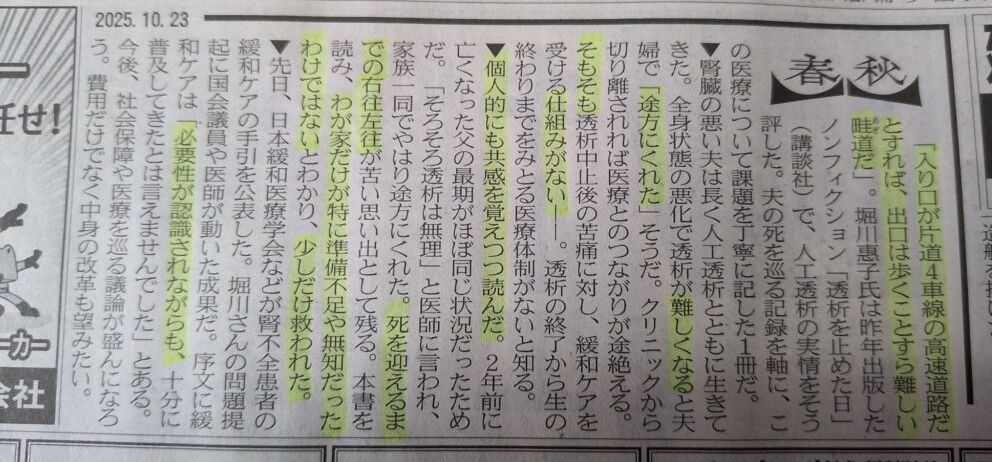 2025.10.23
春秋
「入り口が片道4車線の高速道路だ
とすれば、出口は歩くことすら難しい
あぜ
畦道だ」。堀川惠子氏は昨年出版した
ノンフィクション「透析を止めた日」
(講談社)で、人工透析の実情をそう
評した。夫の死を巡る記録を軸に、こ
の医療について課題を丁寧に記した1冊だ。
▼腎臓の悪い夫は長く人工透析とともに生きて
きた。全身状態の悪化で透析が難しくなると夫
婦で「途方にくれた」そうだ。クリニックから
切り離されれば医療とのつながりが途絶える。
そもそも透析中止後の苦痛に対し、緩和ケアを
受ける仕組みがない――。透析の終了から生の
終わりまでをみとる医療体制がないと知る。
▼個人的にも共感を覚えつつ読んだ。2年前に
亡くなった父の最期がほぼ同じ状況だったため
だ。「そろそろ透析は無理」と医師に言われ、
家族一同でやはり途方にくれた。死を迎えるま
での右往左往が苦い思い出として残る。本書を
読み、わが家だけが特に準備不足や無知だった
わけではないとわかり、少しだけ救われた。
▼先日、日本緩和医療学会などが腎不全患者の
緩和ケアの手引を公表した。堀川さんの問題提
起に国会議員や医師が動いた成果だ。序文に緩
和ケアは「必要性が認識されながらも、十分に
普及してきたとは言えませんでした」とある。
今後、社会保障や医療を巡る議論が盛んになろ
う。費用だけでなく中身の改革も望みたい。
任せ!
カー
会社